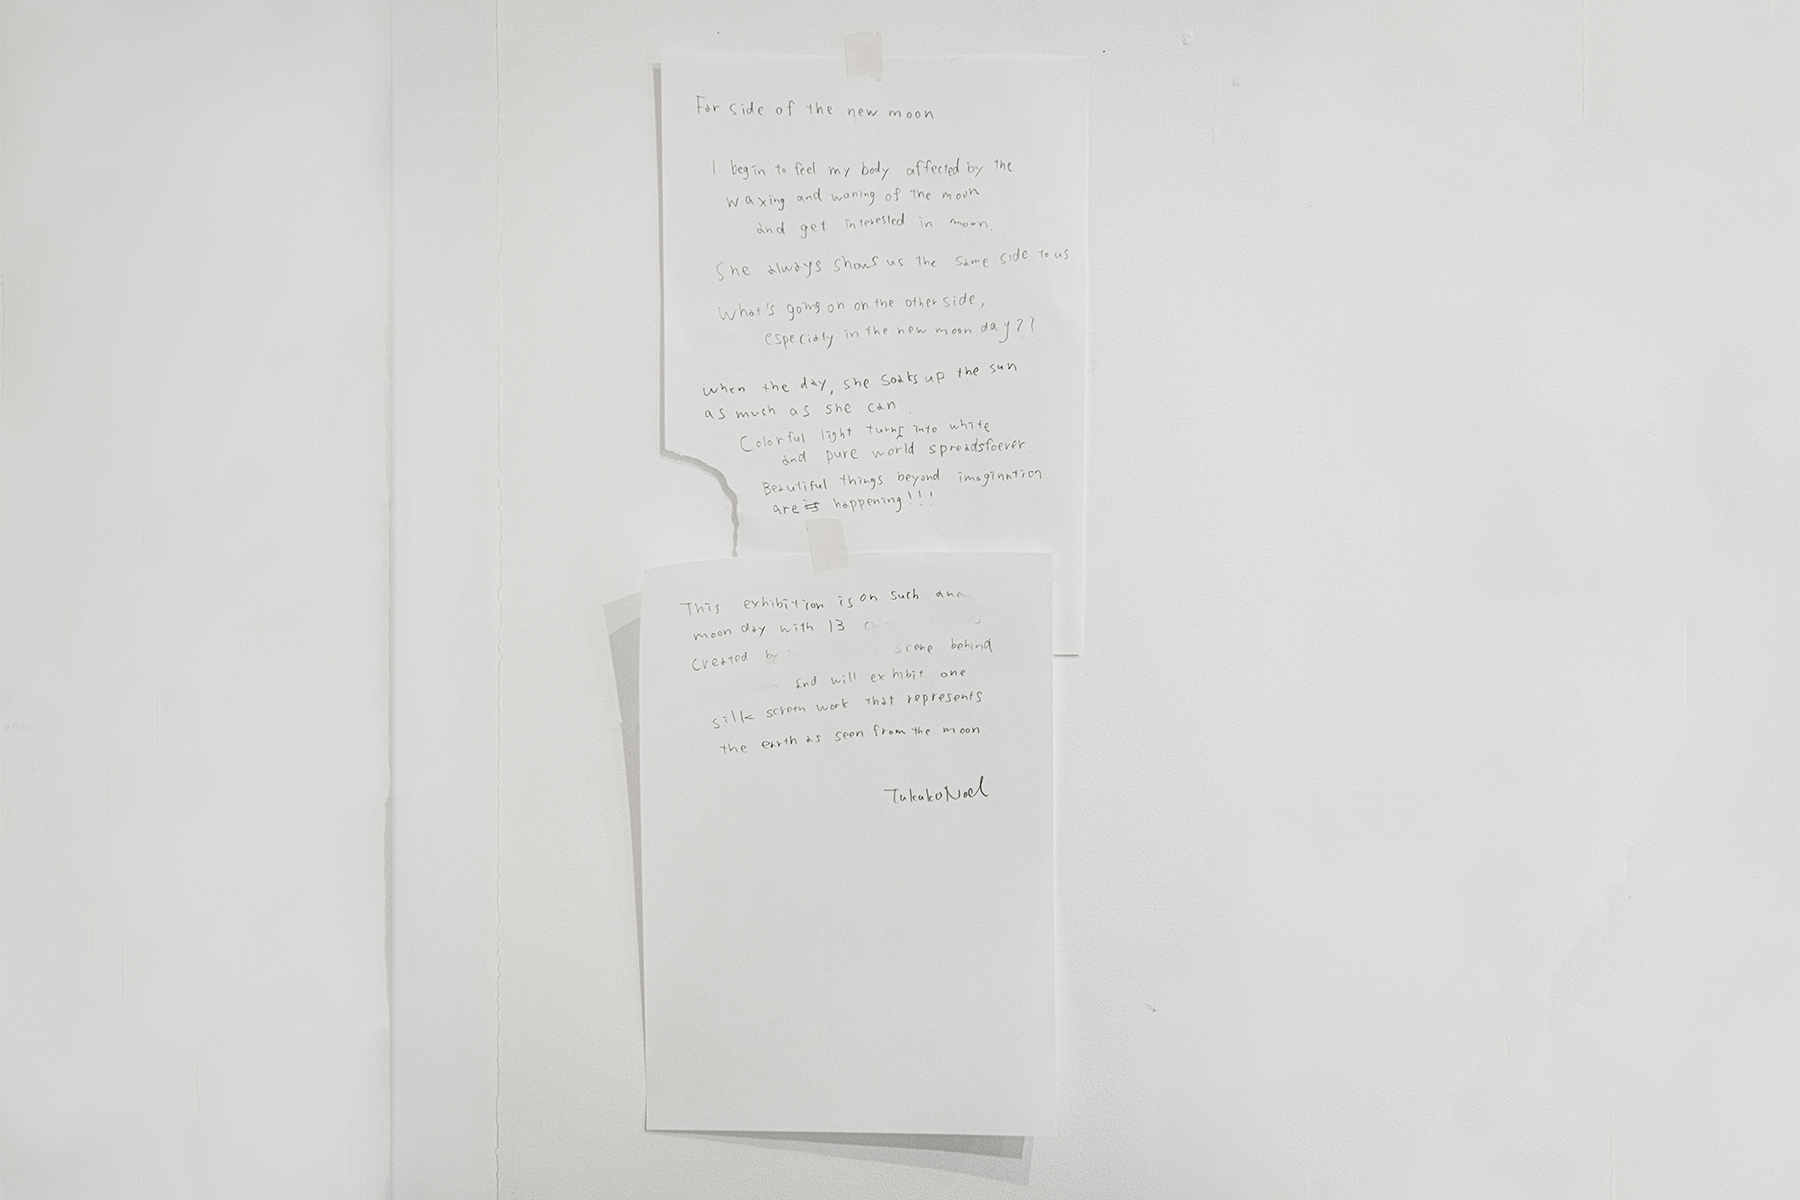 Far side of the new moon
I begin to feel my body affected by the
waxing and waning of the moon
and get interested in moon.
She always shows us the same side to us
What's going on on the other side,
especially in the new moon day??
When the day, she soaks up the sun
as much as she can.
Colorful light turns into white
and pure world spreadsfoever.
Beautiful things beyond imagination
are happening!!!
This exhibition is on such
moon day with 13
created by
scene behind
and will exhibit one
silk screen work that represents
the earth as seen from the moon.
Takako Noel